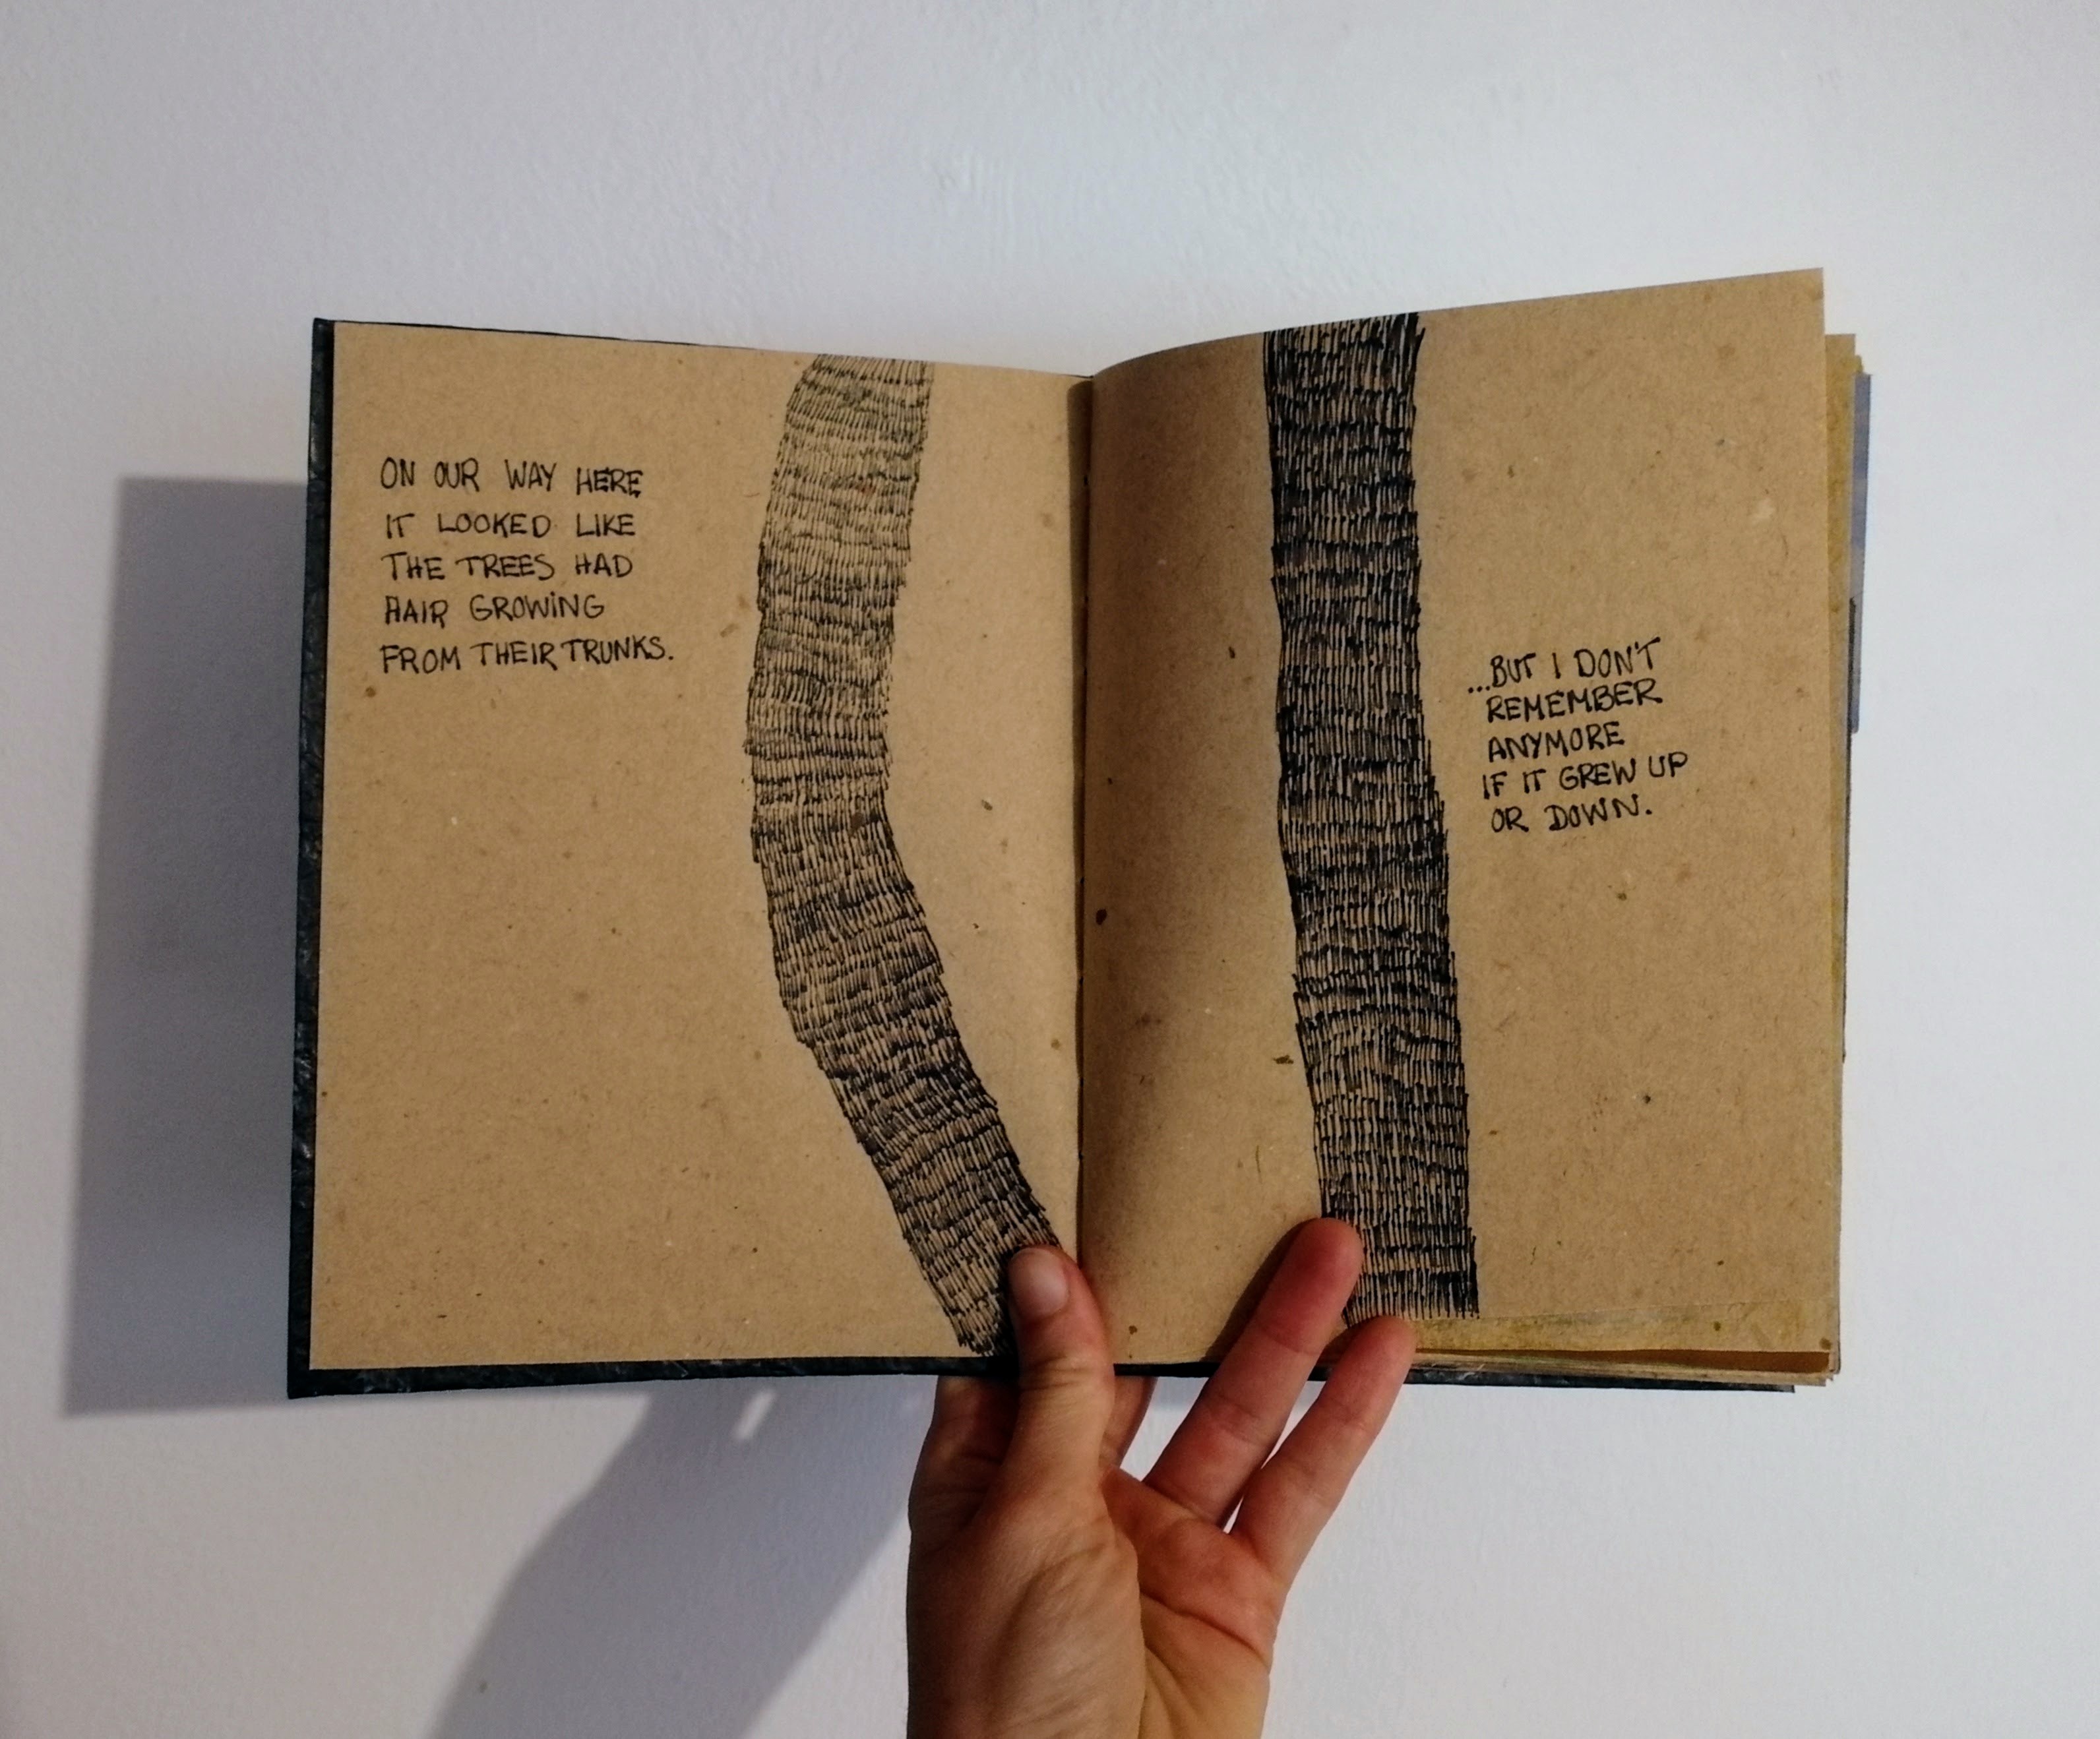 ON OUR WAY HERE
IT LOOKED LIKE
THE TREES HAD
HAIR GROWING
FROM THEIR TRUNKS.
...BUT I DON'T
REMEMBER
ANYMORE
IF IT GREW UP
OR DOWN.